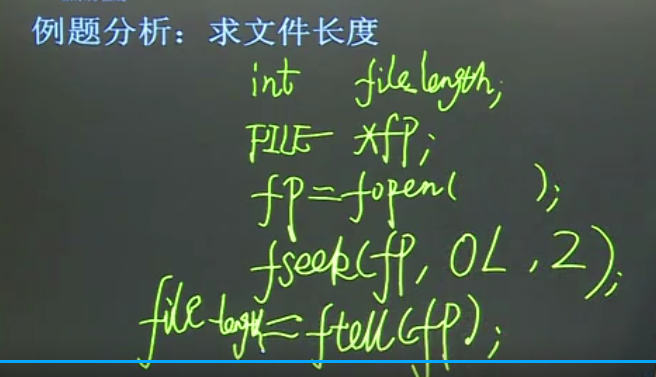 例题分析：求文件长度
int file_length;
FILE *fp;
fp=fopen( );
fseek(fp, 0L, 2);
file_length=ftell(fp);